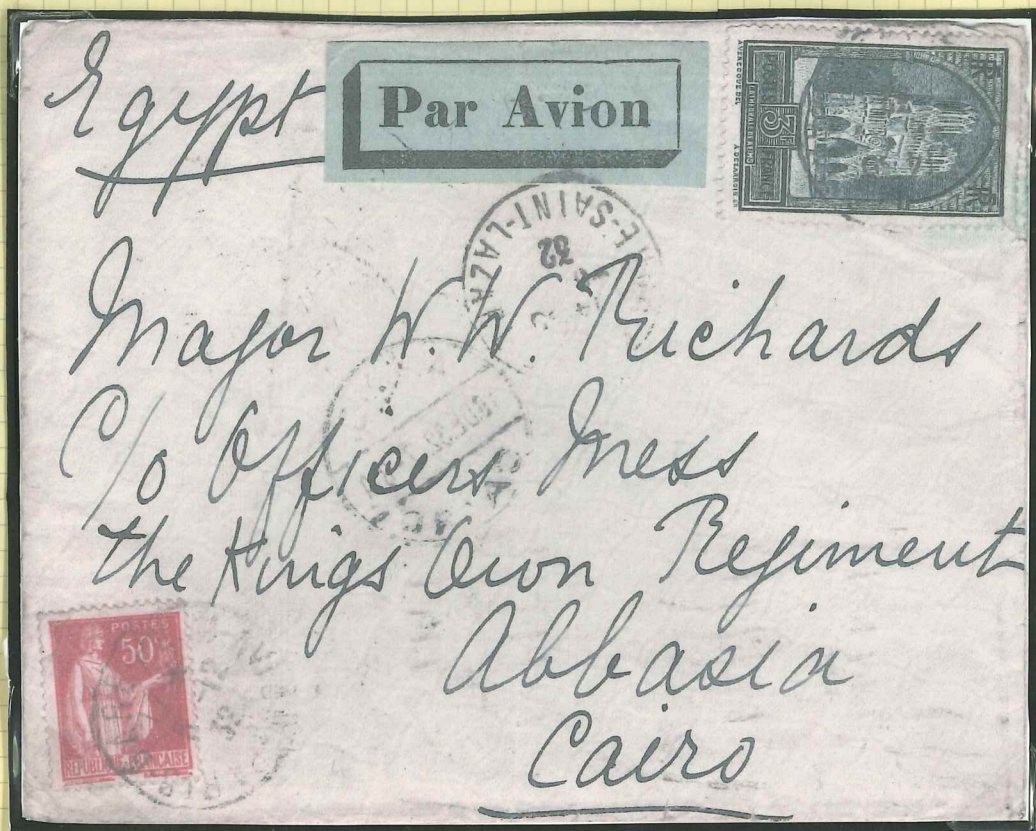 Egypt
Par Avion
POSTES
3F
FRANCE
RF
E-SAINT-LAZA
32
Major W. W. Richards
C/o Officers Mess
the Kings Own Regiment
Abbasia
Cairo
POSTES
50
REPUBLIQUE FRANÇAISE
12